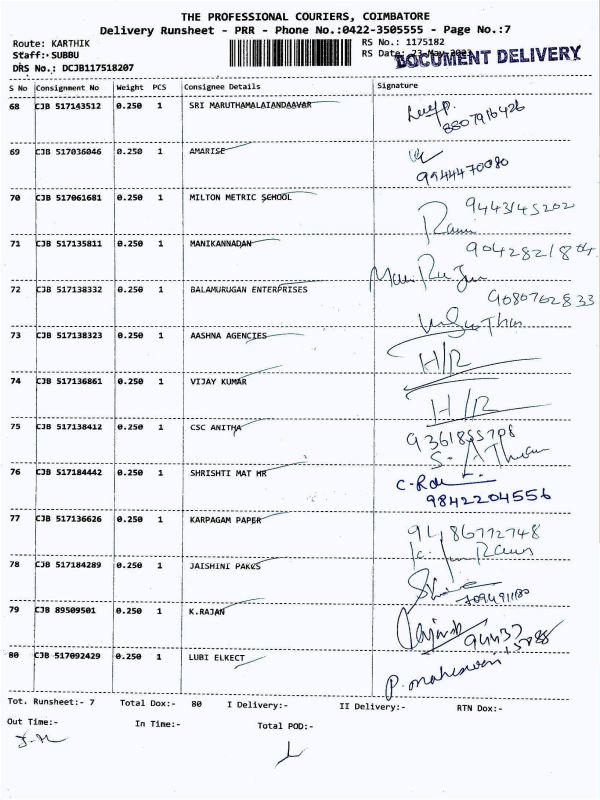 THE PROFESSIONAL COURIERS, COIMBATORE
Delivery Runsheet - PRR - Phone No.:0422-3505555 - Page No.:7
Route: KARTHIK RS No.: 1175182
Staff: SUBBU RS Date: 23-May-2023
DOCUMENT DELIVERY
DRS No.: DCJB117518207
S No Consignment No Weight PCS Consignee Details Signature
68 CJB 517143512 0.250 1 SRI MARUTHAMALAIANDAAVAR
8807916426
69 CJB 517036046 0.250 1 AMARISE
9944470080
70 CJB 517061681 0.250 1 MILTON METRIC SCHOOL
9443145202
71 CJB 517135811 0.250 1 MANIKANNADAN
72 CJB 517138332 0.250 1 BALAMURUGAN ENTERPRISES
9080762833
73 CJB 517138323 0.250 1 AASHNA AGENCIES
H/R
74 CJB 517136861 0.250 1 VIJAY KUMAR
H/R
75 CJB 517138412 0.250 1 CSC ANITHA
9361855708
76 CJB 517184442 0.250 1 SHRISHTI MAT HR
9842204556
77 CJB 517136626 0.250 1 KARPAGAM PAPER
9486772748
78 CJB 517184289 0.250 1 JAISHINI PAKCS
79 CJB 89509501 0.250 1 K.RAJAN
80 CJB 517092429 0.250 1 LUBI ELKECT
P. maheswari
Tot. Runsheet:- 7 Total Dox:- 80 I Delivery:- II Delivery:- RTN Dox:-
Out Time:- In Time:- Total POD:-